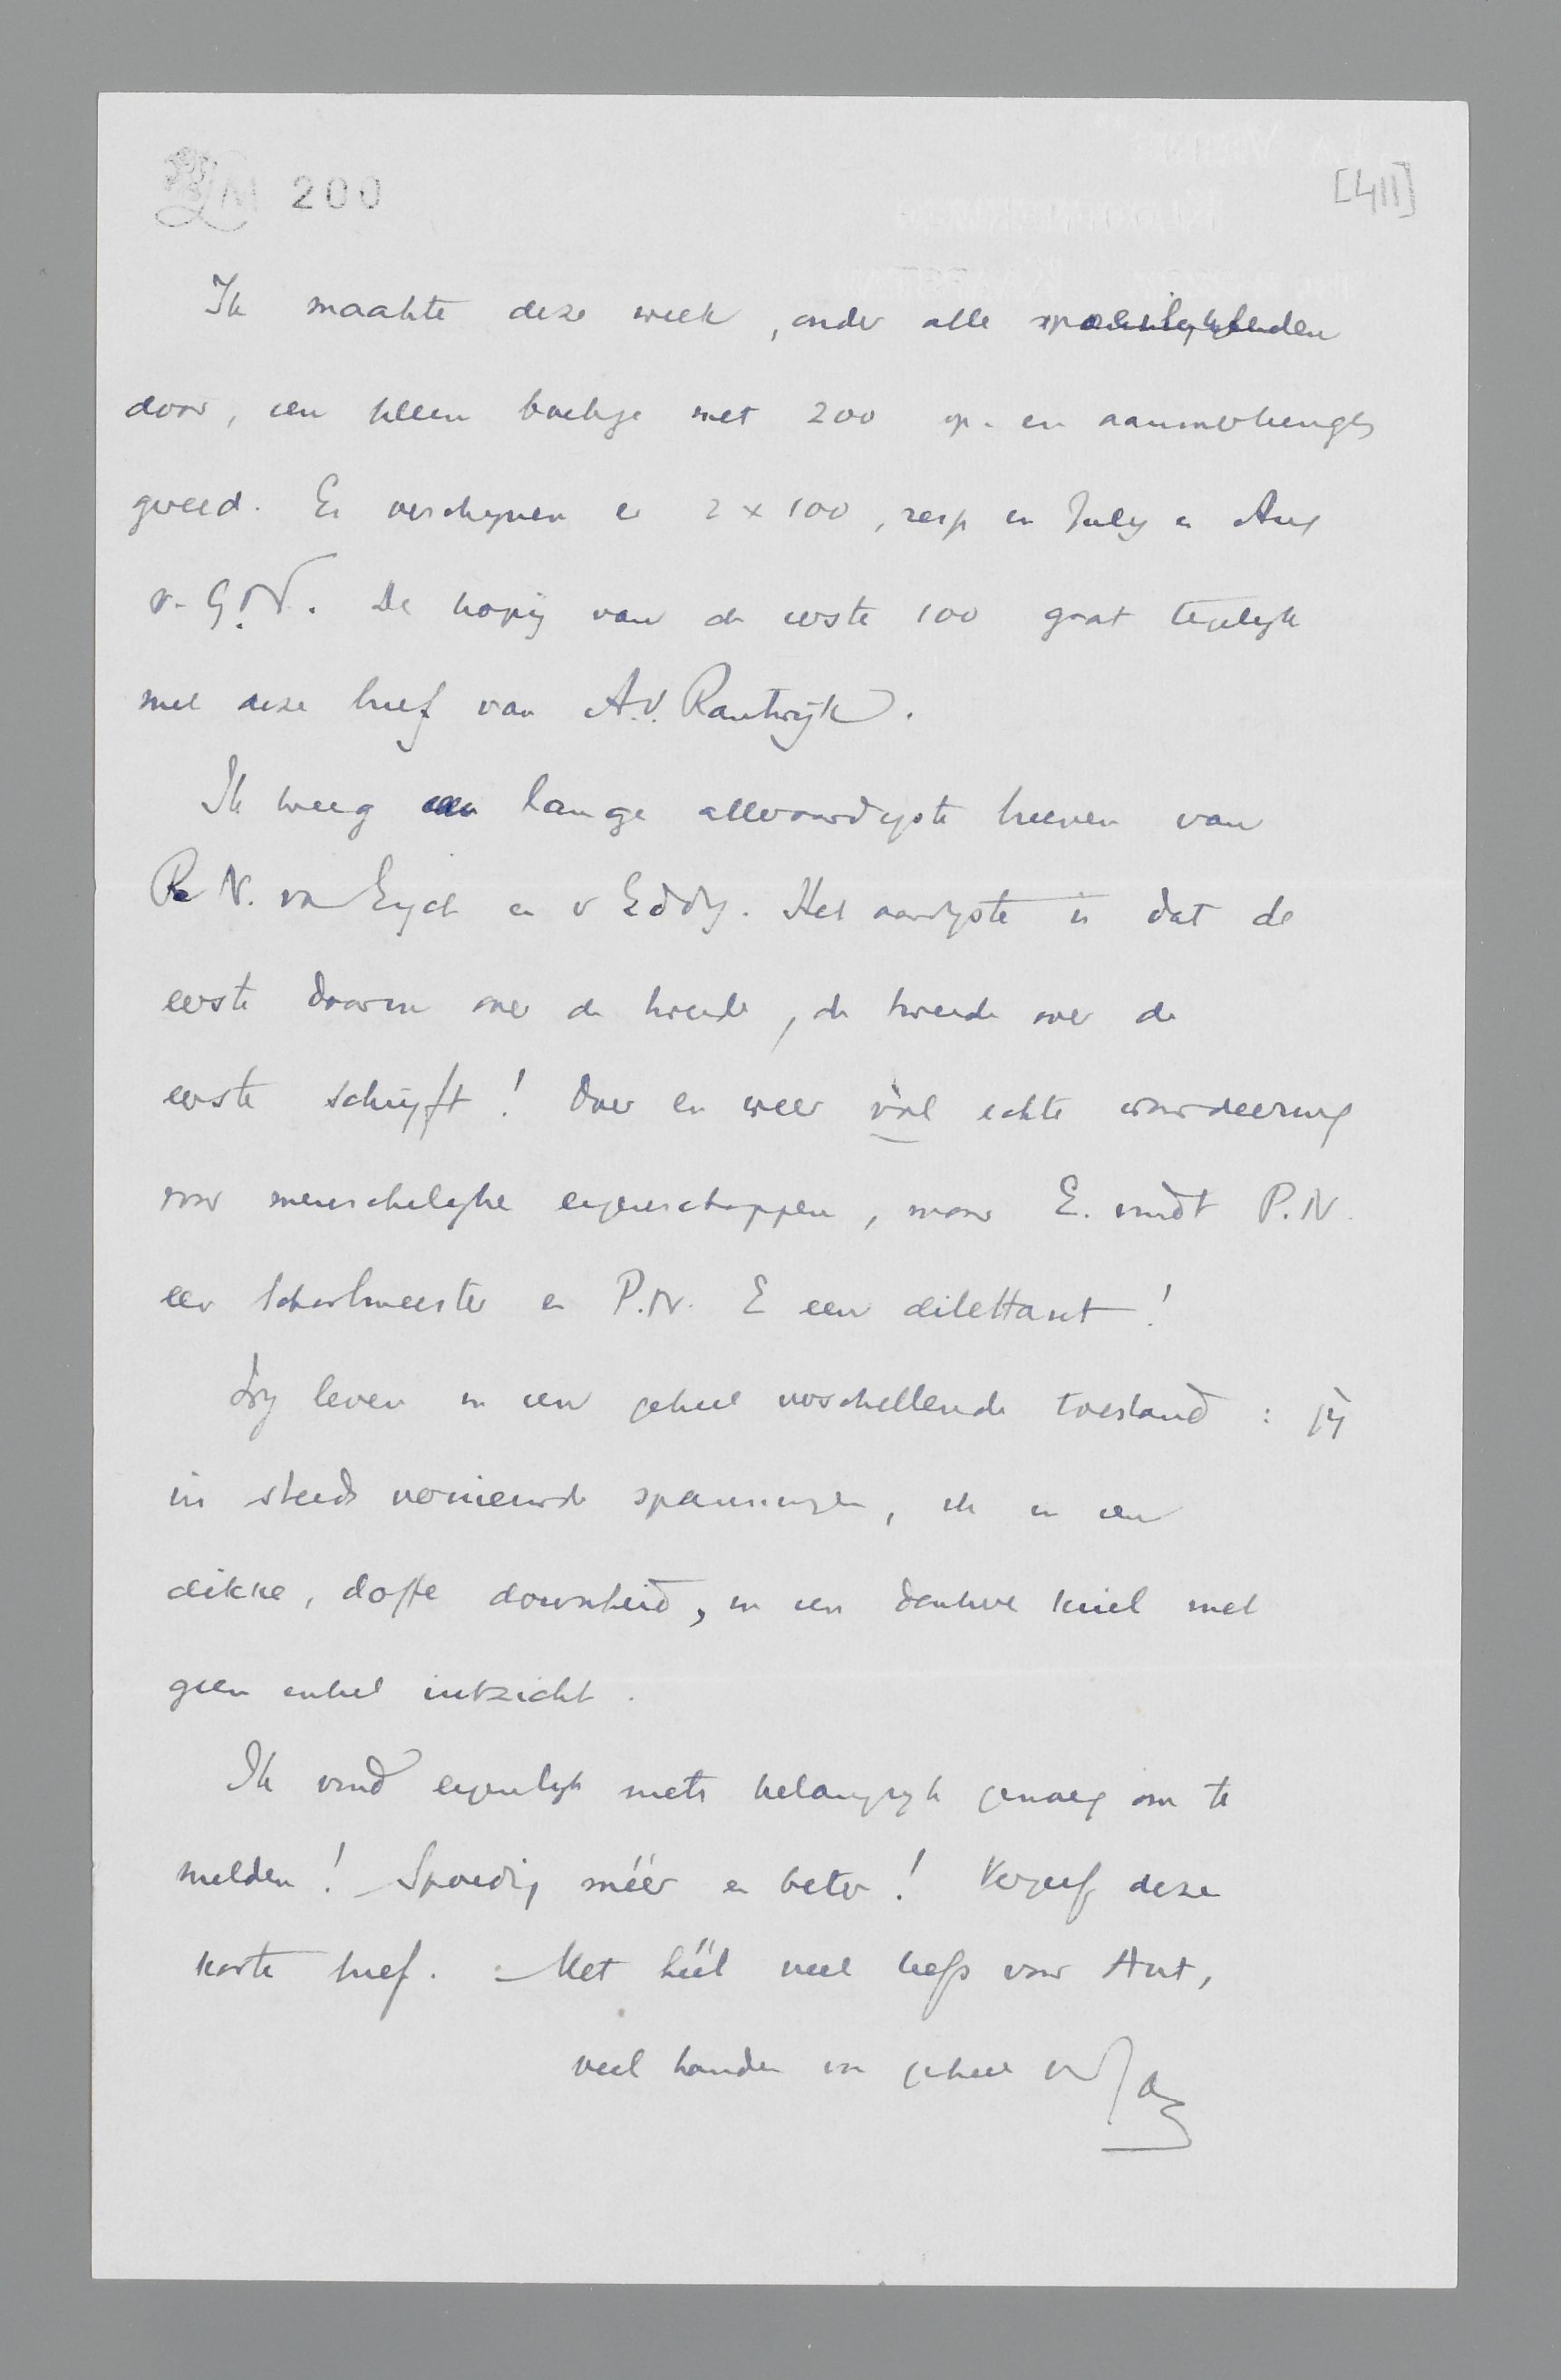 LM 200
[411]
Ik maakte deze week, onder alle moeilijkheden
door, een kleen boekje met 200 op- en aanmerkingen
gereed. Er verschijnen er 2 x 100, resp in July en Aug
v. G.N. De kopij van de eerste 100 gaat tegelijk
met deze brief van A.v. Rantwijk.
Ik kreeg lange allervaardigste brieven van
P.N. van Eyck en v Eddy. Het aardigste is dat de
eerste daarin over de tweede, de tweede over de
eerste schrijft! Over en weer vol echte waardeering
voor menschelijke eigenschappen, maar E. vindt P.N.
een schoolmeester en P.N. E een dilettant!
Wij leven in een geheel verschillende toestand: jij
in steeds vernieuwde spanningen, ik in een
dikke, doffe doovheid, in een donkere kuil met
geen enkel uitzicht.
Ik vind eigenlijk niets belangrijk genoeg om te
melden! Spoedig méér en beter! Vergeef deze
korte brief. Met héél veel liefs voor Ant,
veel handen en geheel